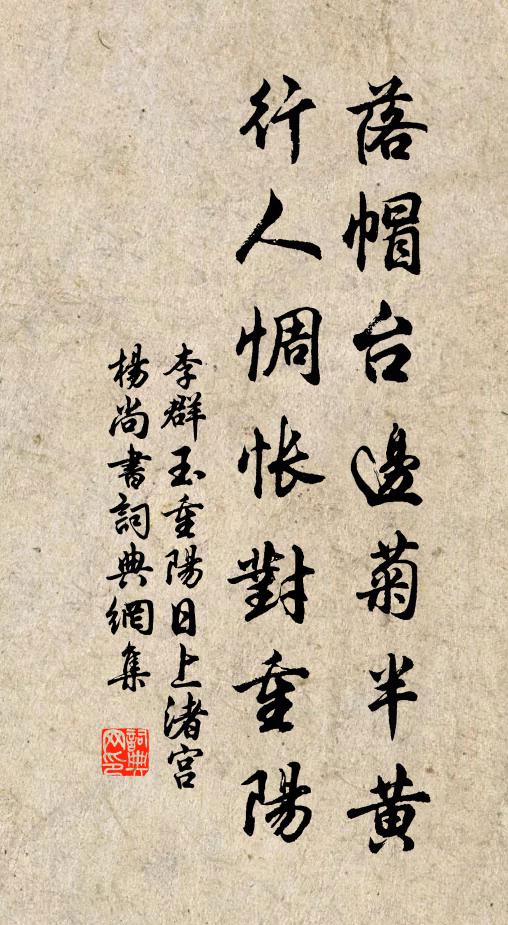 落帽台邊菊半黃
行人惆悵對重陽
李群玉重陽日上渚宮
楊尚書詞典網集
詞典
网印